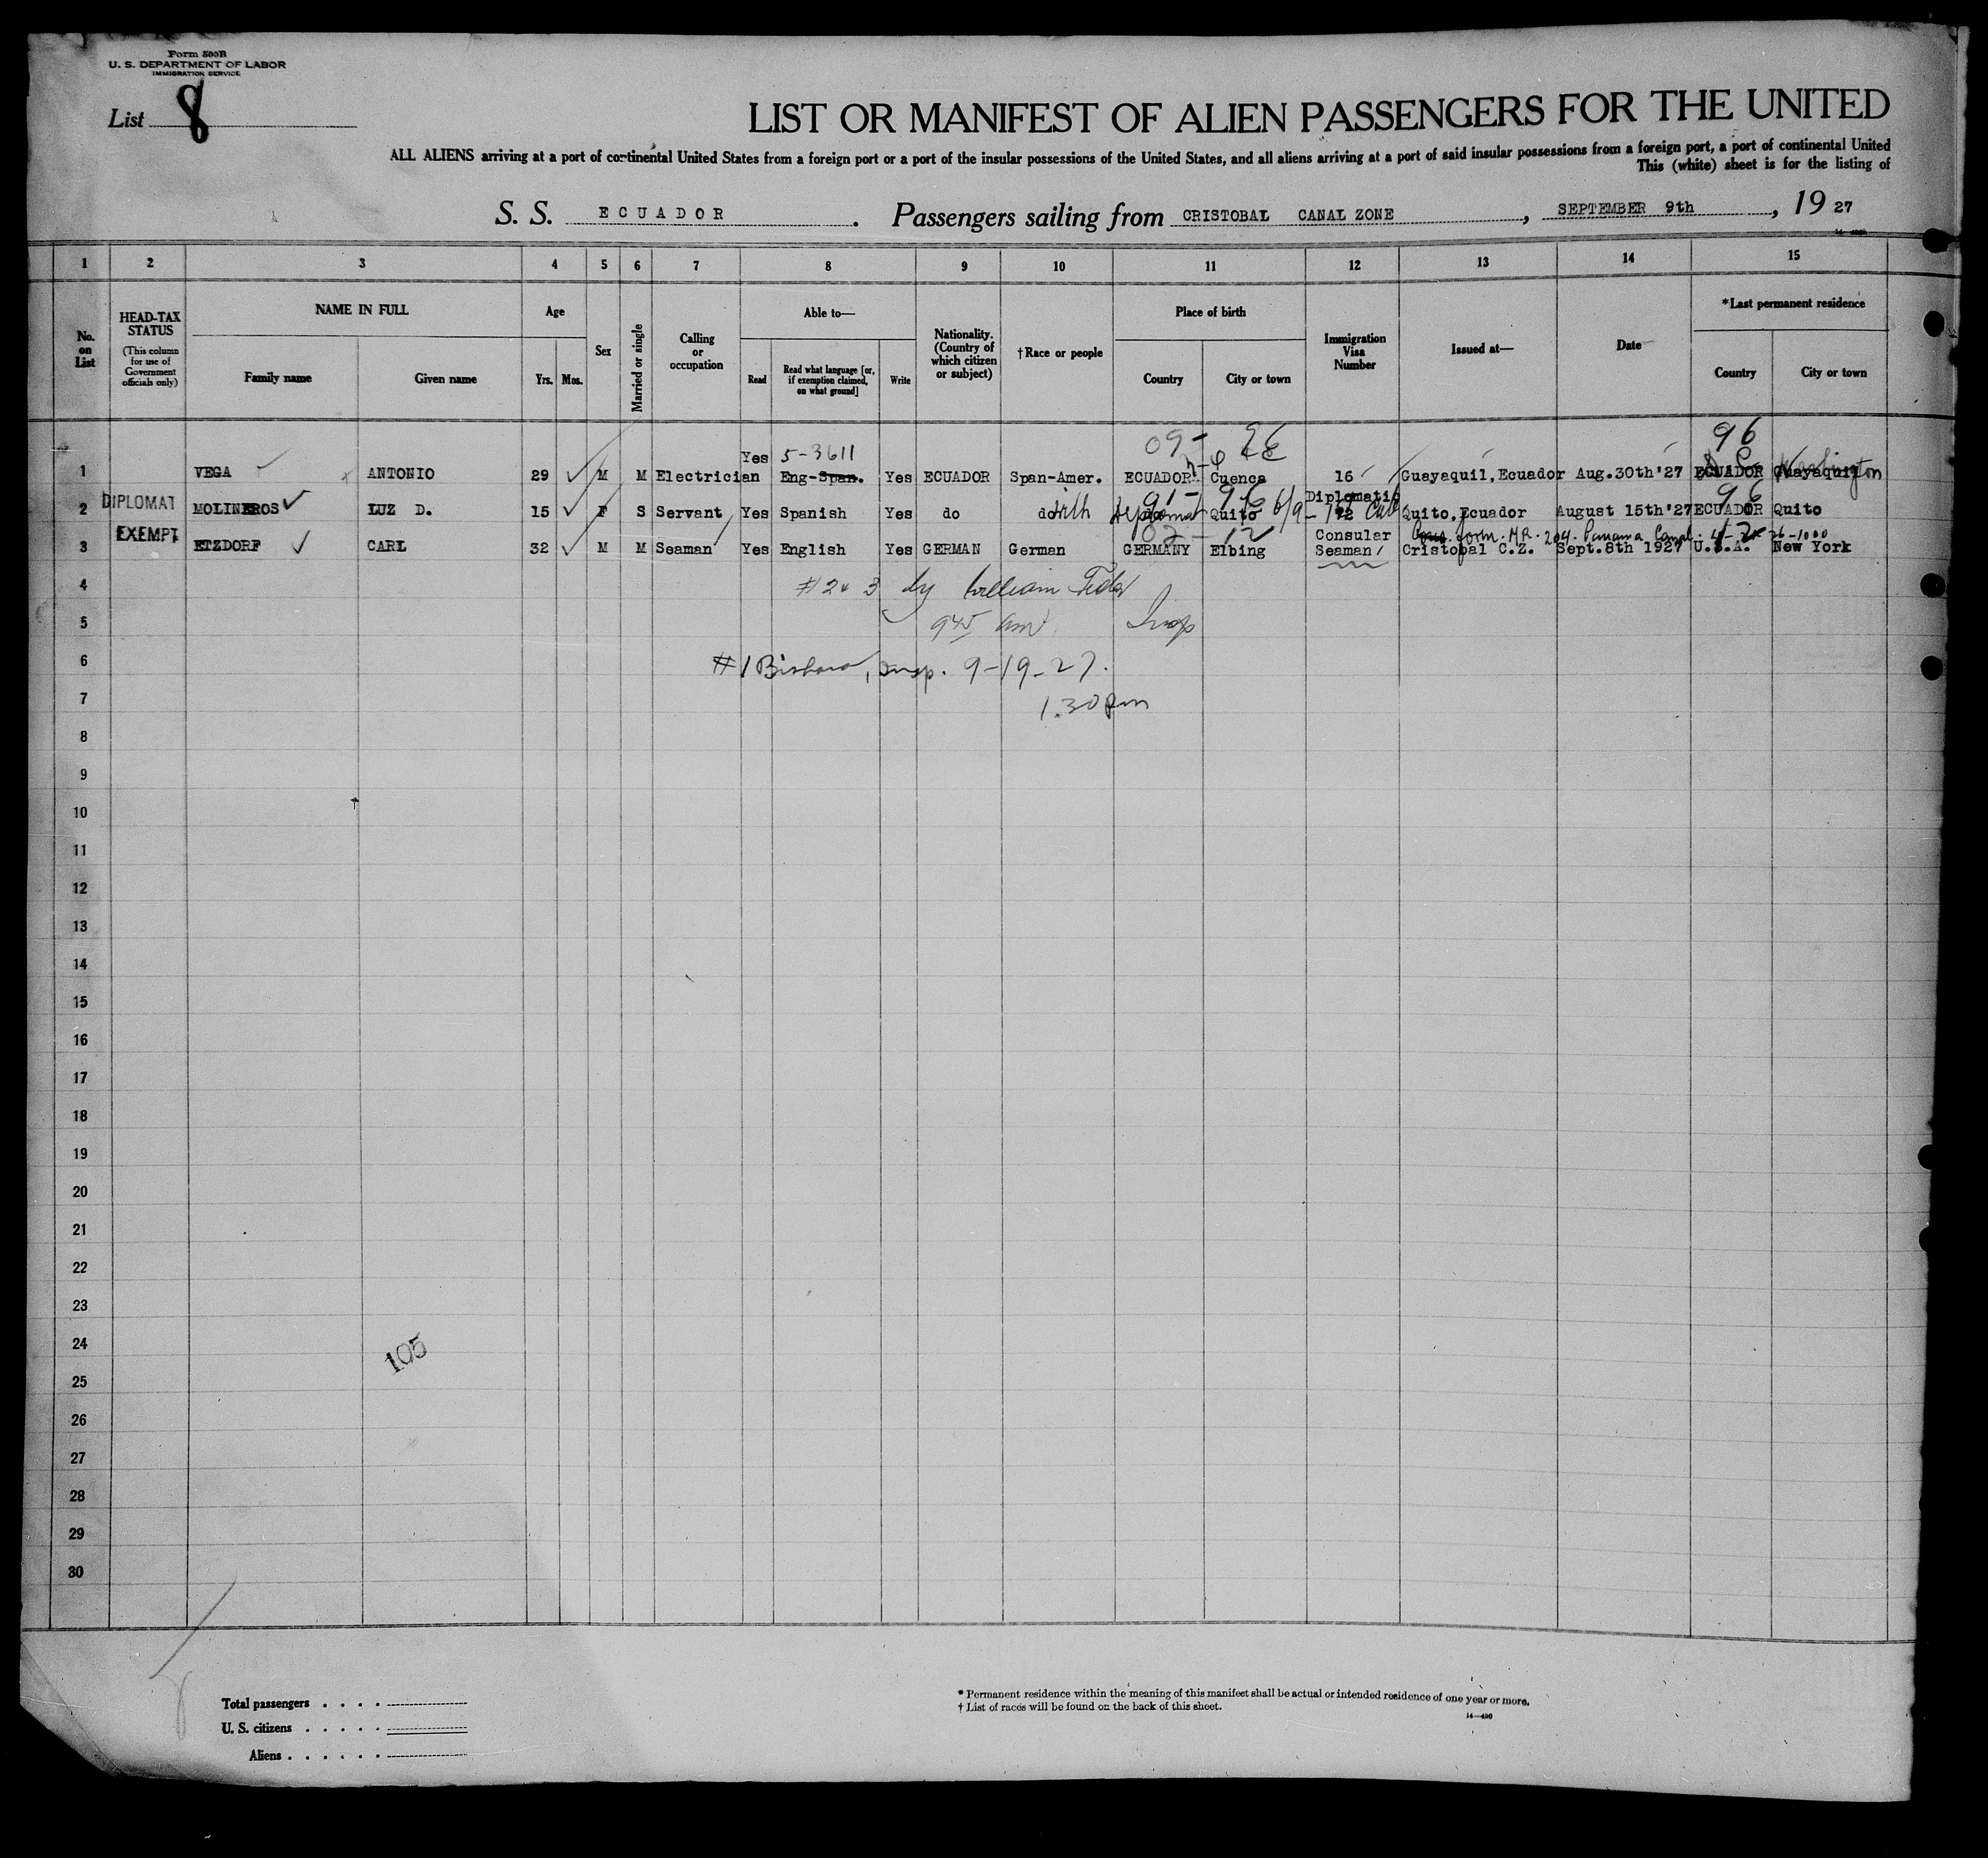 Form 500B
U. S. DEPARTMENT OF LABOR
IMMIGRATION SERVICE
List 8
LIST OR MANIFEST OF ALIEN PASSENGERS FOR THE UNITED
ALL ALIENS arriving at a port of continental United States from a foreign port or a port of the insular possessions of the United States, and all aliens arriving at a port of said insular possessions from a foreign port, a port of continental United
This (white) sheet is for the listing of
S. S. ECUADOR. Passengers sailing from CRISTOBAL CANAL ZONE, SEPTEMBER 9th, 19 27
1 2 3 4 5 6 7 8 9 10 11 12 13 14 15
No. on List
HEAD-TAX STATUS
(This column for use of Government officials only)
NAME IN FULL
Family name Given name
Age
Yrs. Mos.
Sex
Married or single
Calling or occupation
Able to—
Read
Read what language [or, if exemption claimed, on what ground]
Write
Nationality. (Country of which citizen or subject)
†Race or people
Place of birth
Country City or town
Immigration Visa Number
Issued at—
Date
*Last permanent residence
Country City or town
5-3611 09- 96
1 VEGA ANTONIO 29 M M Electrician Yes Eng-Span. Yes ECUADOR Span-Amer. ECUADOR Cuenca 16 Guayaquil,Ecuador Aug.30th'27 ECUADOR Guayaquil Washington
DIPLOMAT 91- 96 Diplomatic 96
2 MOLINEROS LUZ D. 15 F S Servant Yes Spanish Yes do do with Quito 12 Quito,Ecuador August 15th'27 ECUADOR Quito
EXEMPT 02-12 Consular form. 204. Panama Canal. 26-1000
3 ETZDORF CARL 32 M M Seaman Yes English Yes GERMAN German GERMANY Elbing Seaman Cristobal C.Z. Sept.8th 1927 U.S.A. New York
4 #2 & 3 by William
5 945 am Insp
6 #1 Insp. 9-19-27.
7 1.30 pm
8
9
10
11
12
13
14
15
16
17
18
19
20
21
22
23
24 105
25
26
27
28
29
30
Total passengers . . . .
U. S. citizens . . . . .
Aliens . . . . . .
* Permanent residence within the meaning of this manifest shall be actual or intended residence of one year or more.
† List of races will be found on the back of this sheet.